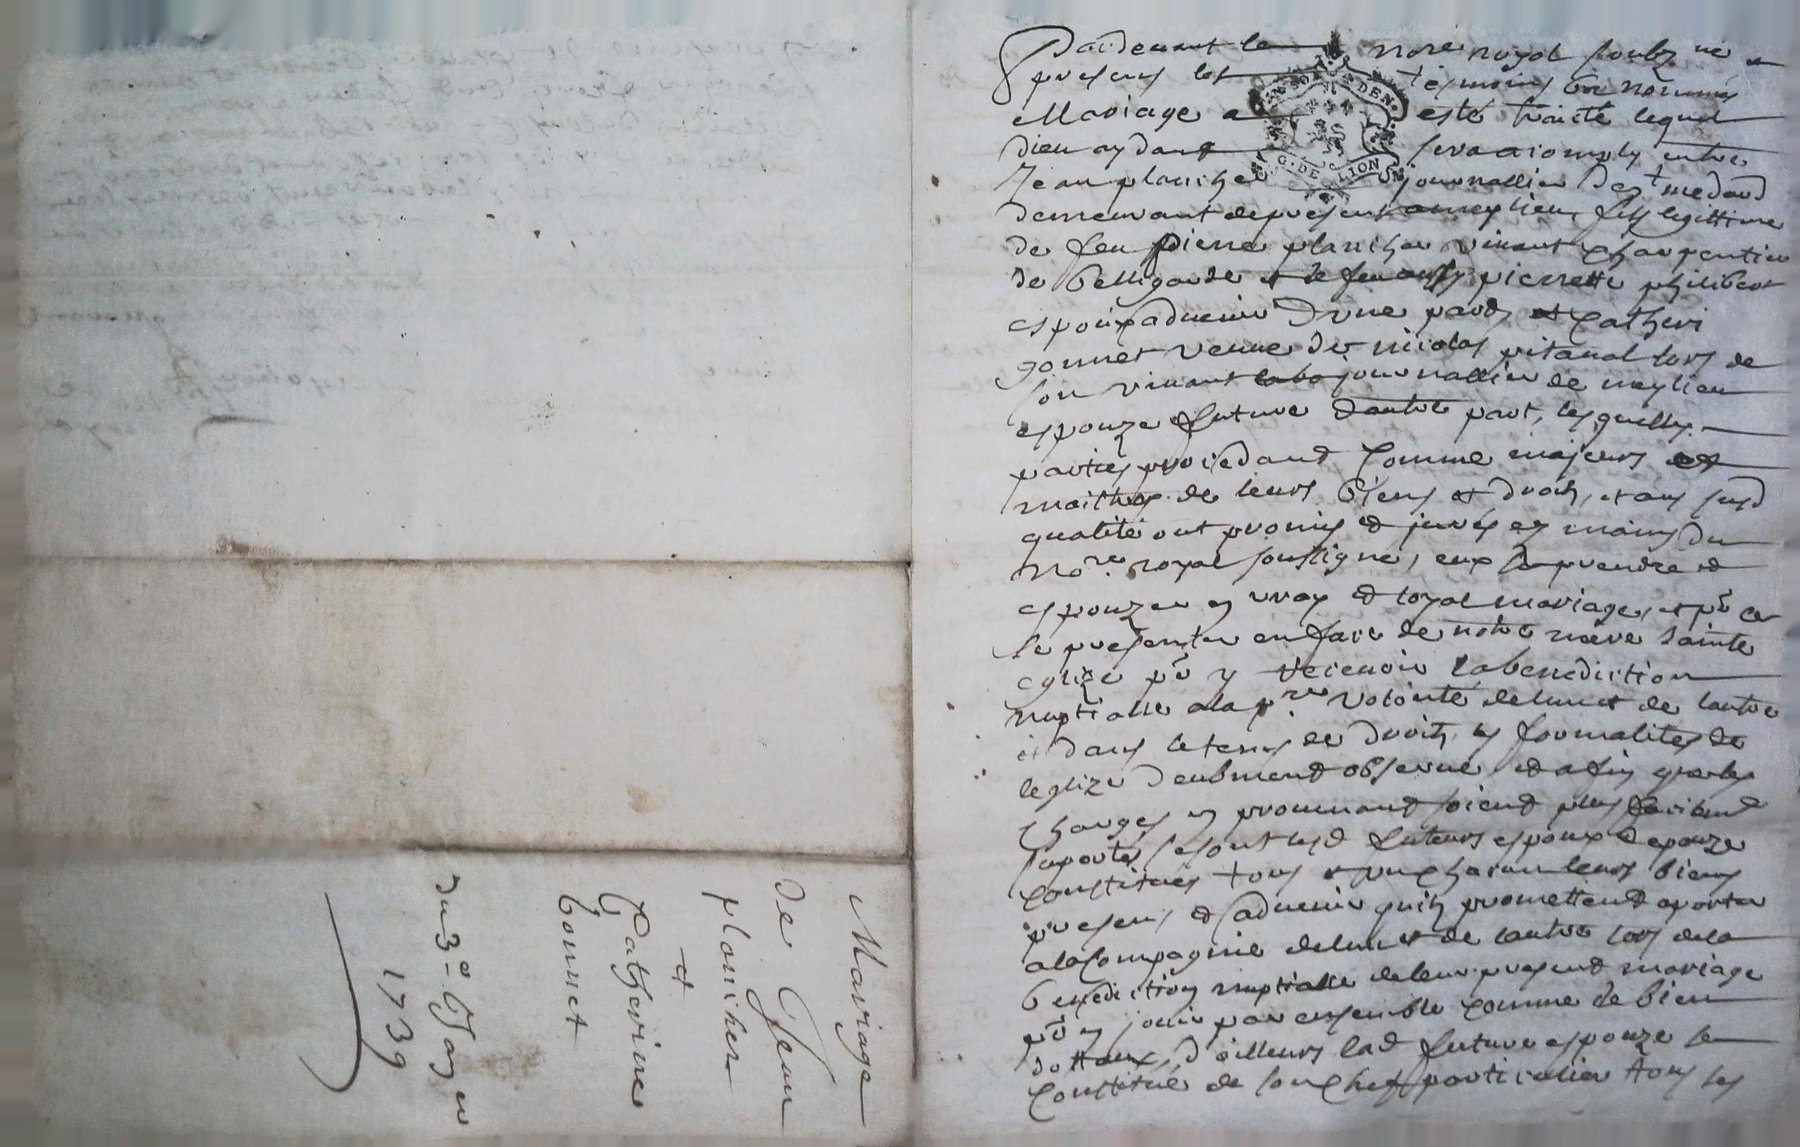 Mariage
de Jean
planicher
et
Catherine
Gonnet
du 3e Janer
1739
Pardevant le nore royal soubzne et
presens les tesmoins bas nommés
Mariage a esté traicté lequel
dieu aydant sera acomply entre
Jean planiche journallier de st medard
demeurant depresent a meylieu, fils legittime
de feu pierre planicher vivant charpentier
de bellegarde et de feu aussy pierrette philibert
espoux advenir d'une part, et Catheri
gonnet veuve de nicolas pitaval lors de
son vivant labo journallier de meylieu
espouze future d'autre part, lesquelles
parties procedant comme majeurs et
maithes de leurs biens et droits, et aus susd
qualité ont promis et jurés es mains du
nore royal soussigné, eux se prendre et
espouzer en vray et loyal mariage, et pr ce
se presenter en face de notre mere sainte
eglize pr y recevoir la benediction
nuptialle a la pre volonté de lun et de lautre
et dans le tems de droit, les formalites de
leglize deubment observé, et afin que les
charges en provenant soient plus facilemt
suportés se sont lesd futeurs espoux et epouze
constitués tous et un chacun leurs biens
presens et advenir quils promettent aporter
a la compagnie de lun et de lautre lors de la
benediction nuptialle de leur present mariage
pr en jouir par ensemble comme de bien
dottaux, d'ailleurs lad future espouze se
constitué de son chef particulier tous les